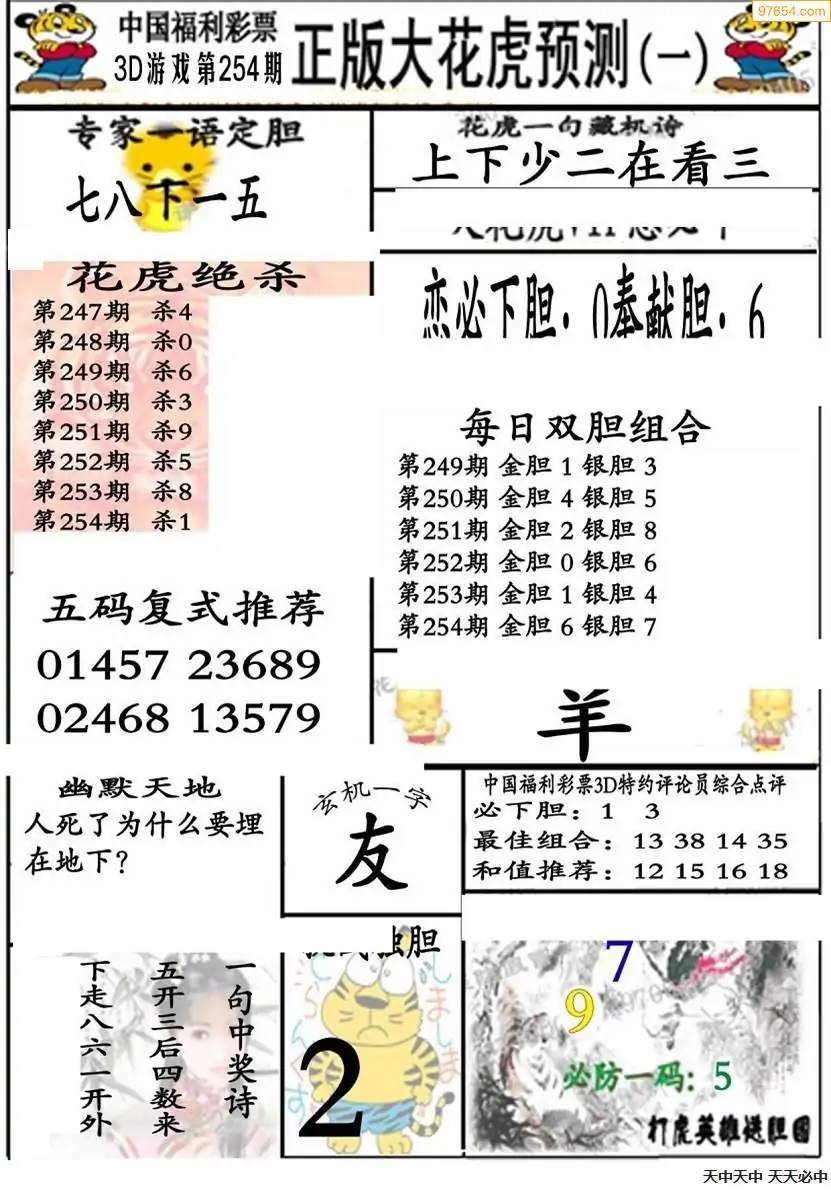 97654.com
中国福利彩票
3D游戏第254期
正版大花虎预测(一)
专家一语定胆
七八下一五
花虎一句藏机诗
上下少二在看三
花虎绝杀
第247期 杀4
第248期 杀0
第249期 杀6
第250期 杀3
第251期 杀9
第252期 杀5
第253期 杀8
第254期 杀1
恋必下胆：0奉献胆：6
每日双胆组合
第249期 金胆 1 银胆 3
第250期 金胆 4 银胆 5
第251期 金胆 2 银胆 8
第252期 金胆 0 银胆 6
第253期 金胆 1 银胆 4
第254期 金胆 6 银胆 7
五码复式推荐
01457 23689
02468 13579
羊
幽默天地
人死了为什么要埋
在地下？
玄机一字
友
中国福利彩票3D特约评论员综合点评
必下胆：1 3
最佳组合：13 38 14 35
和值推荐：12 15 16 18
一句中奖诗
五开三后四数来
下走八六一开外
独胆
2
7
9
必防一码：5
打虎英雄送胆图
天中天中 天天必中